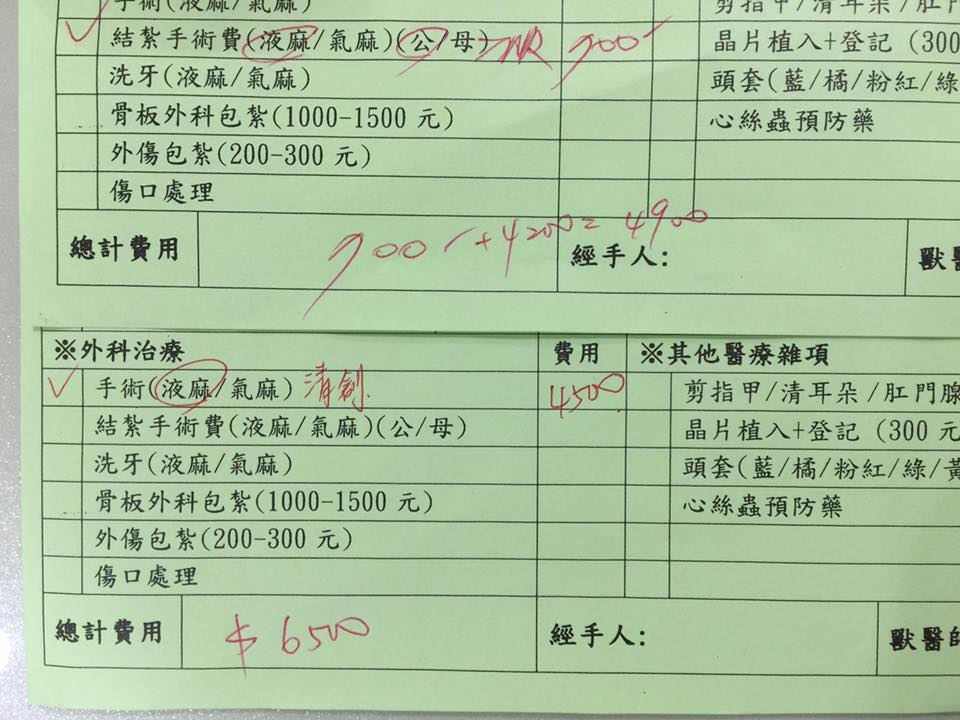 手術(液麻/氣麻) 剪指甲/清耳朵/肛門
結紮手術費(液麻/氣麻)(公/母) TNR 700 晶片植入+登記 (300
洗牙(液麻/氣麻) 頭套(藍/橘/粉紅/綠
骨板外科包紮(1000-1500 元) 心絲蟲預防藥
外傷包紮(200-300 元)
傷口處理
總計費用 700 +4200=4900 經手人: 獸醫
※外科治療 費用 ※其他醫療雜項
手術(液麻/氣麻) 清創 4500 剪指甲/清耳朵/肛門腺
結紮手術費(液麻/氣麻)(公/母) 晶片植入+登記 (300 元
洗牙(液麻/氣麻) 頭套(藍/橘/粉紅/綠/黃
骨板外科包紮(1000-1500 元) 心絲蟲預防藥
外傷包紮(200-300 元)
傷口處理
總計費用 $6500 經手人: 獸醫師